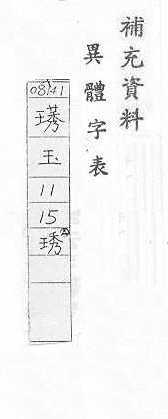 補充資料
異體字表
璓
玉
11
15
琇